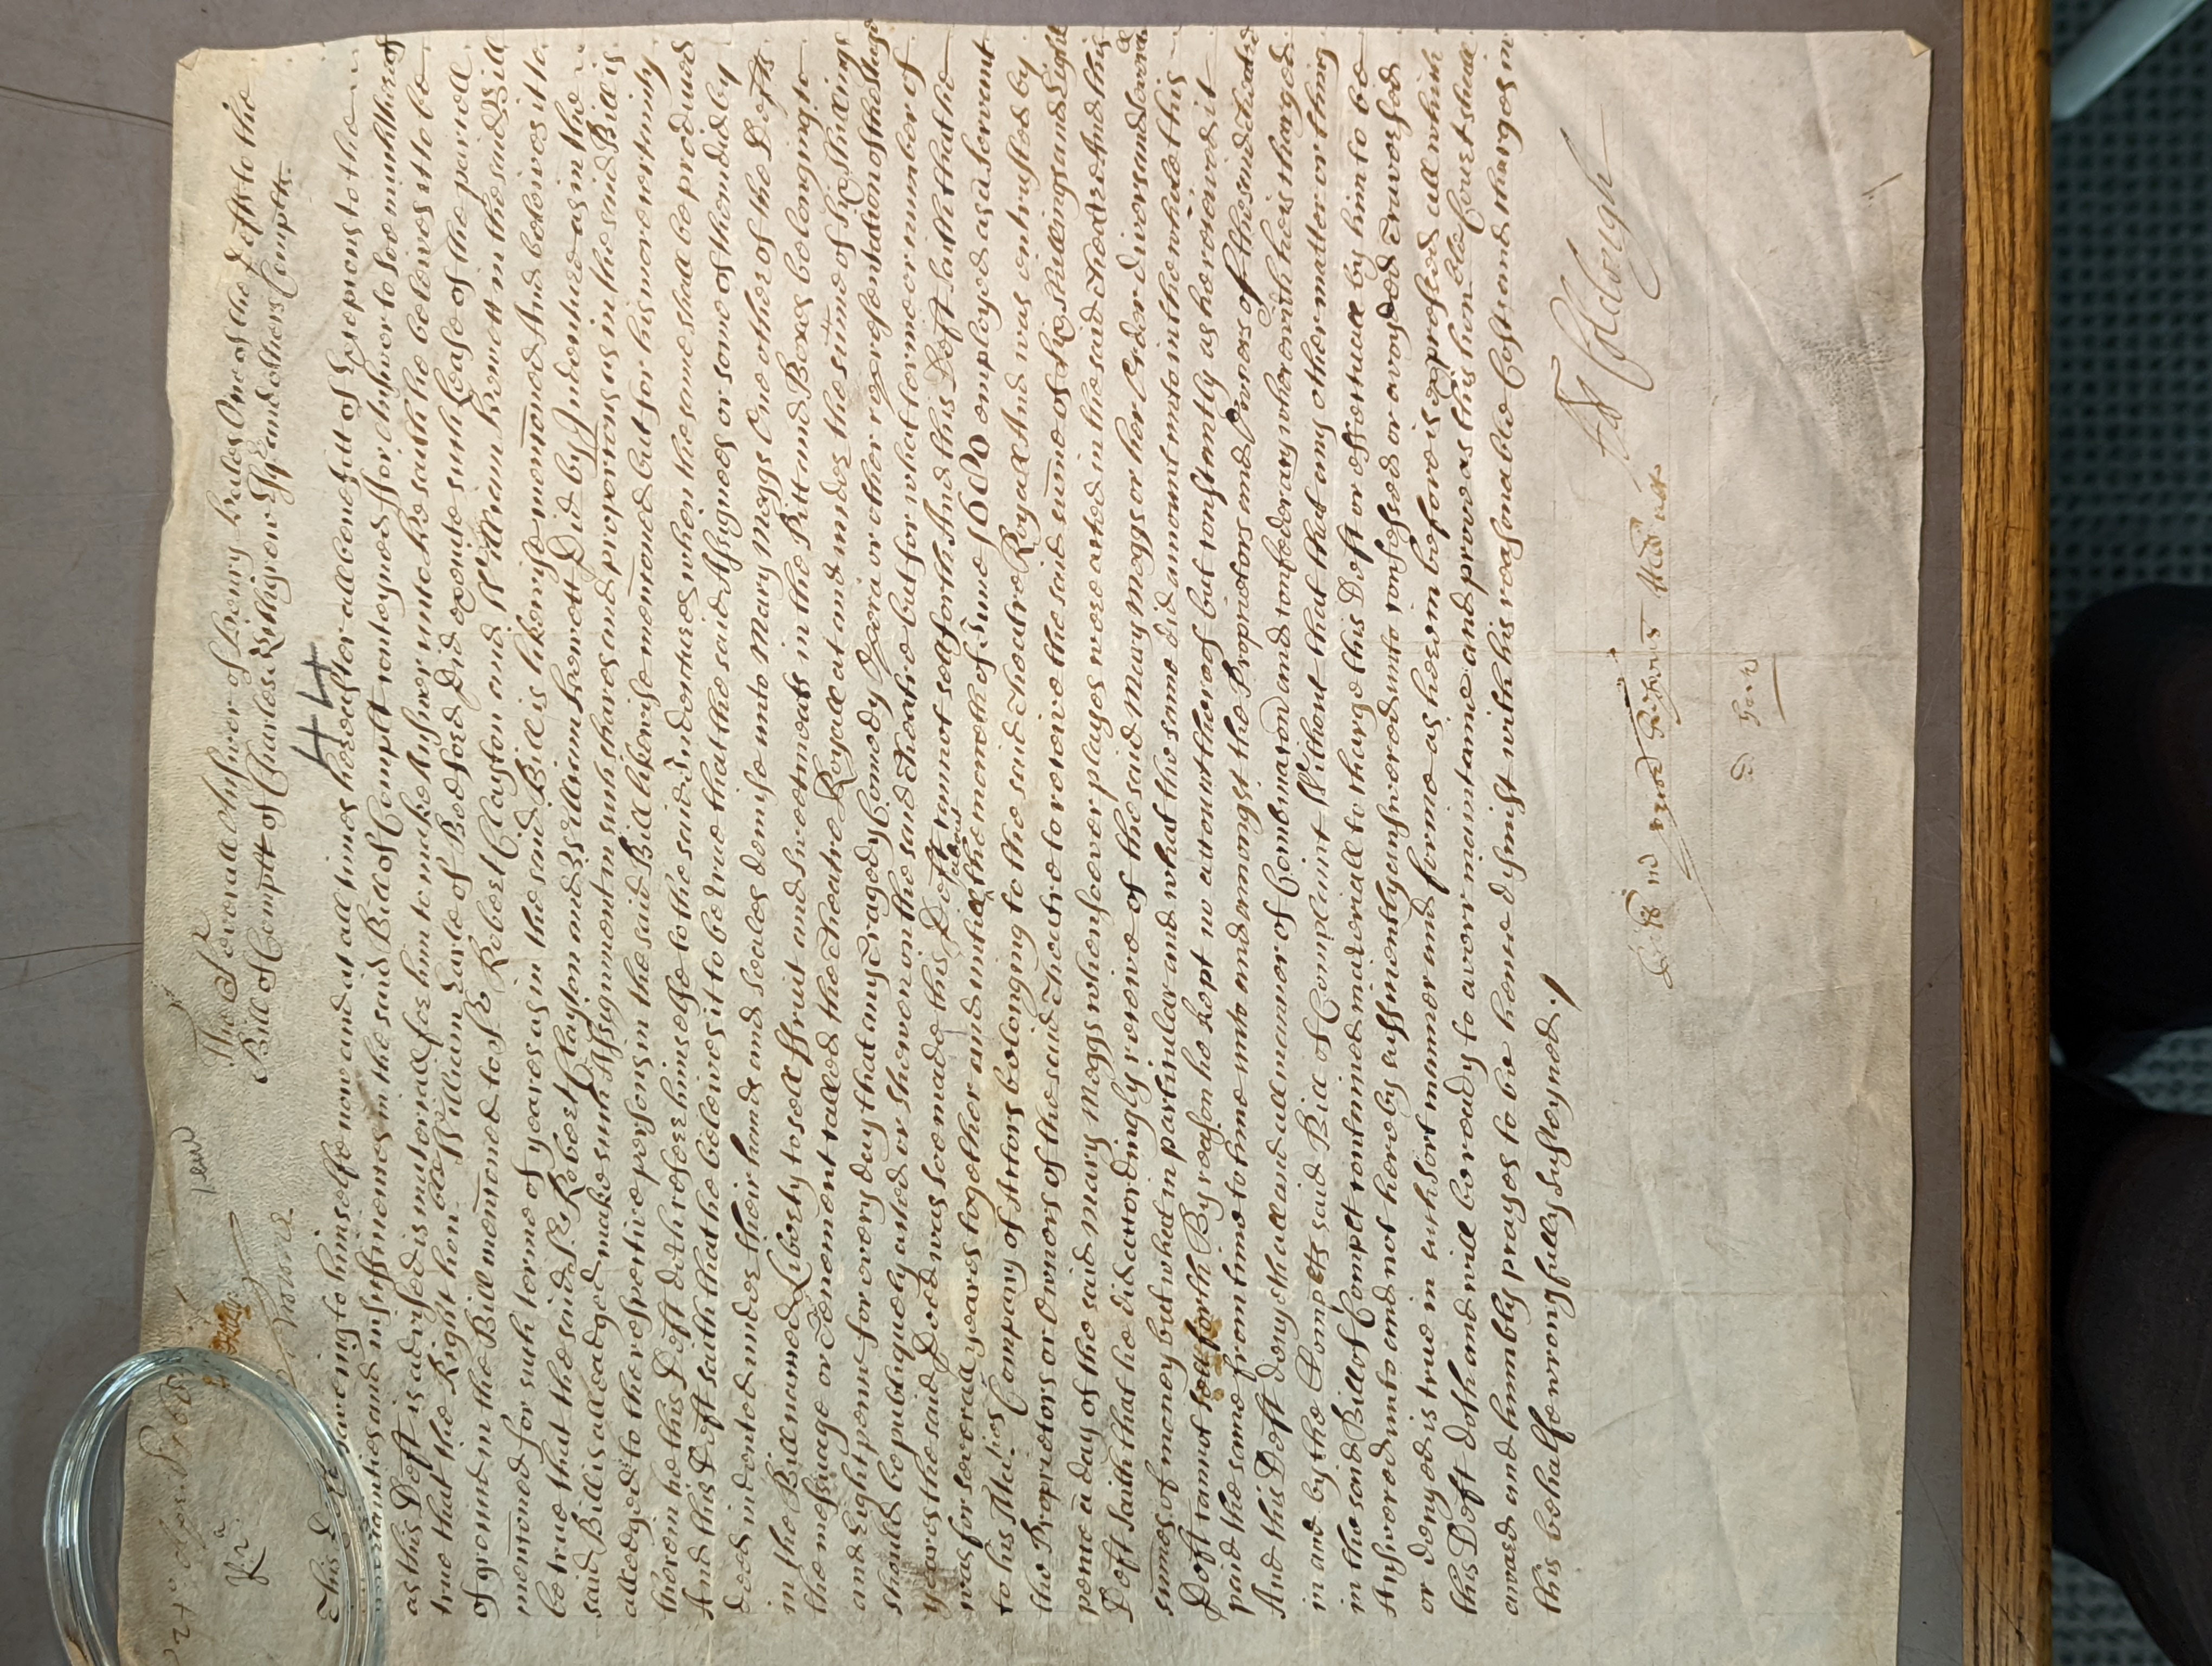 The Severall Answer of Henry Hales One of the Defts to the
Bill of Compt of Charles Killigrew Esq and others Compts.
44
This Deft saveing to himselfe now and at all times hereafter all benefitt of Exceptions to the
incertainties and insufficiencies in the said Bill of Complt conteyned ffor Answer to soe much thereof
as this Deft is advised is materiall for him to make Answer unto he saith he beleives it to be
true that the Right honble William Earle of Bedford Did Demise such Lease of the parcell
of ground in the Bill menconed to Sr Robert Clayton and William Hewett in the said Bill
menconed for such terme of yeares as in the said Bill is likewise menconed And beleives it to
be true that the said Sr Robert Clayton and William Hewett Did by Indenture as in the
said Bill is alleadged make such Assignment in such shares and proporcons as in the said Bill is
alleadged to the respective persons in the said Bill likewise menconed but for his more certainty
therein he this Deft doth referr himselfe to the said Indentures when the same shall be produced
And this Deft saith that he beleives it to be true that the said Assignees or some of them did by
deed indented under their hands and seales demise unto Mary Meggs One other of the Defts
in the Bill named Liberty to sell ffruit and sweetmeats in the Pitt and Boxes belonging to
the messuage or Tenement called the Theatre Royall at and under the summe of six Shillings
and Eight pence for every day that any Tragedy Comedy Opera or other representation of the Stage
should be publiquely acted or shewen on the said Theatre but for what terme or number of
yeares the said Deed was soe made this Deft cannot sett forth And this Deft saith that he
was for severall yeares together and untill about the moneth of June 1680 employed as a servant
to his Maties Company of Actors belonging to the said Theatre Royall And was entrusted by
the Proprietors or Owners of the said Theatre to receive the said summe of six Shillings and Eight
pence a day of the said Mary Meggs whensoever playes were acted in the said Theatre And this
Deft saith that he did accordingly receive of the said Mary Meggs or her Order divers and severall
summes of money but what in particular and what the same did amount unto in the whole this
Deft cannot sett forth By reason he kept no account thereof but constantly as he received it
paid the same from time to time unto and amongst the Proprietors and Owners of the said Theatre
And this Deft denyeth all and all manner of Combinacon and confederacy wherewith he is charged
in and by the Complts said Bill of Complaint Without that that any other matter or thing
in the said Bill of Complt conteined materiall to charge this Deft or effectuall by him to be
Answered unto and not hereby sufficiently answered unto confessed or avoyded traversed
or denyed is true in such sort manner and forme as herein before is expressed all which
this Deft doth and will be ready to averr maintaine and prove as this honble Court shall
award and humbly prayes to be hence dismist with his reasonable Costs and charges in
this behalfe wrongfully susteyned./